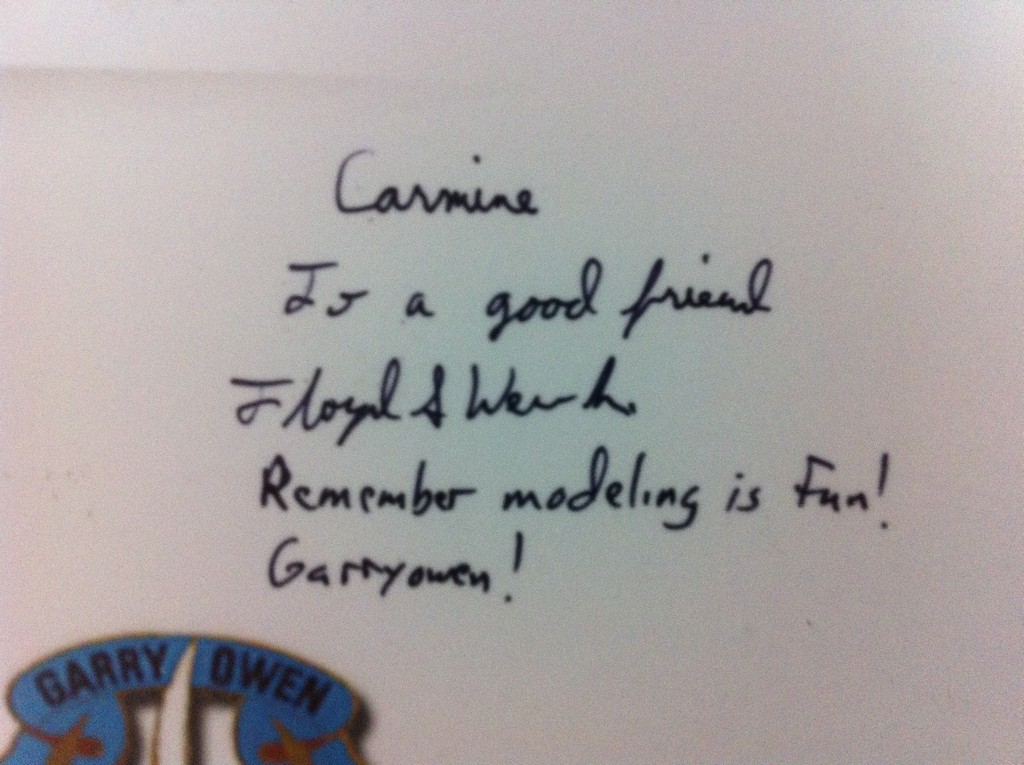 Carmine
To a good friend
Floyd S Werner Jr.
Remember modeling is Fun!
Garryowen!
GARRY OWEN